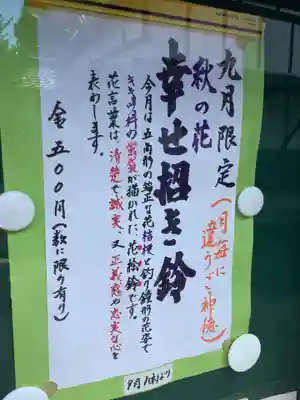 九月限定
(月毎に
違うご神徳)
秋の花
幸せ招き鈴
今月は五角形の端正な花桔梗と釣り鐘形の花姿で
ききょう科の蛍袋が描かれた、花絵鈴です。
花言葉は、清楚で誠実、又正義感や忠実な心を
表わします。
金五〇〇円(数に限り有り)
9月1日より